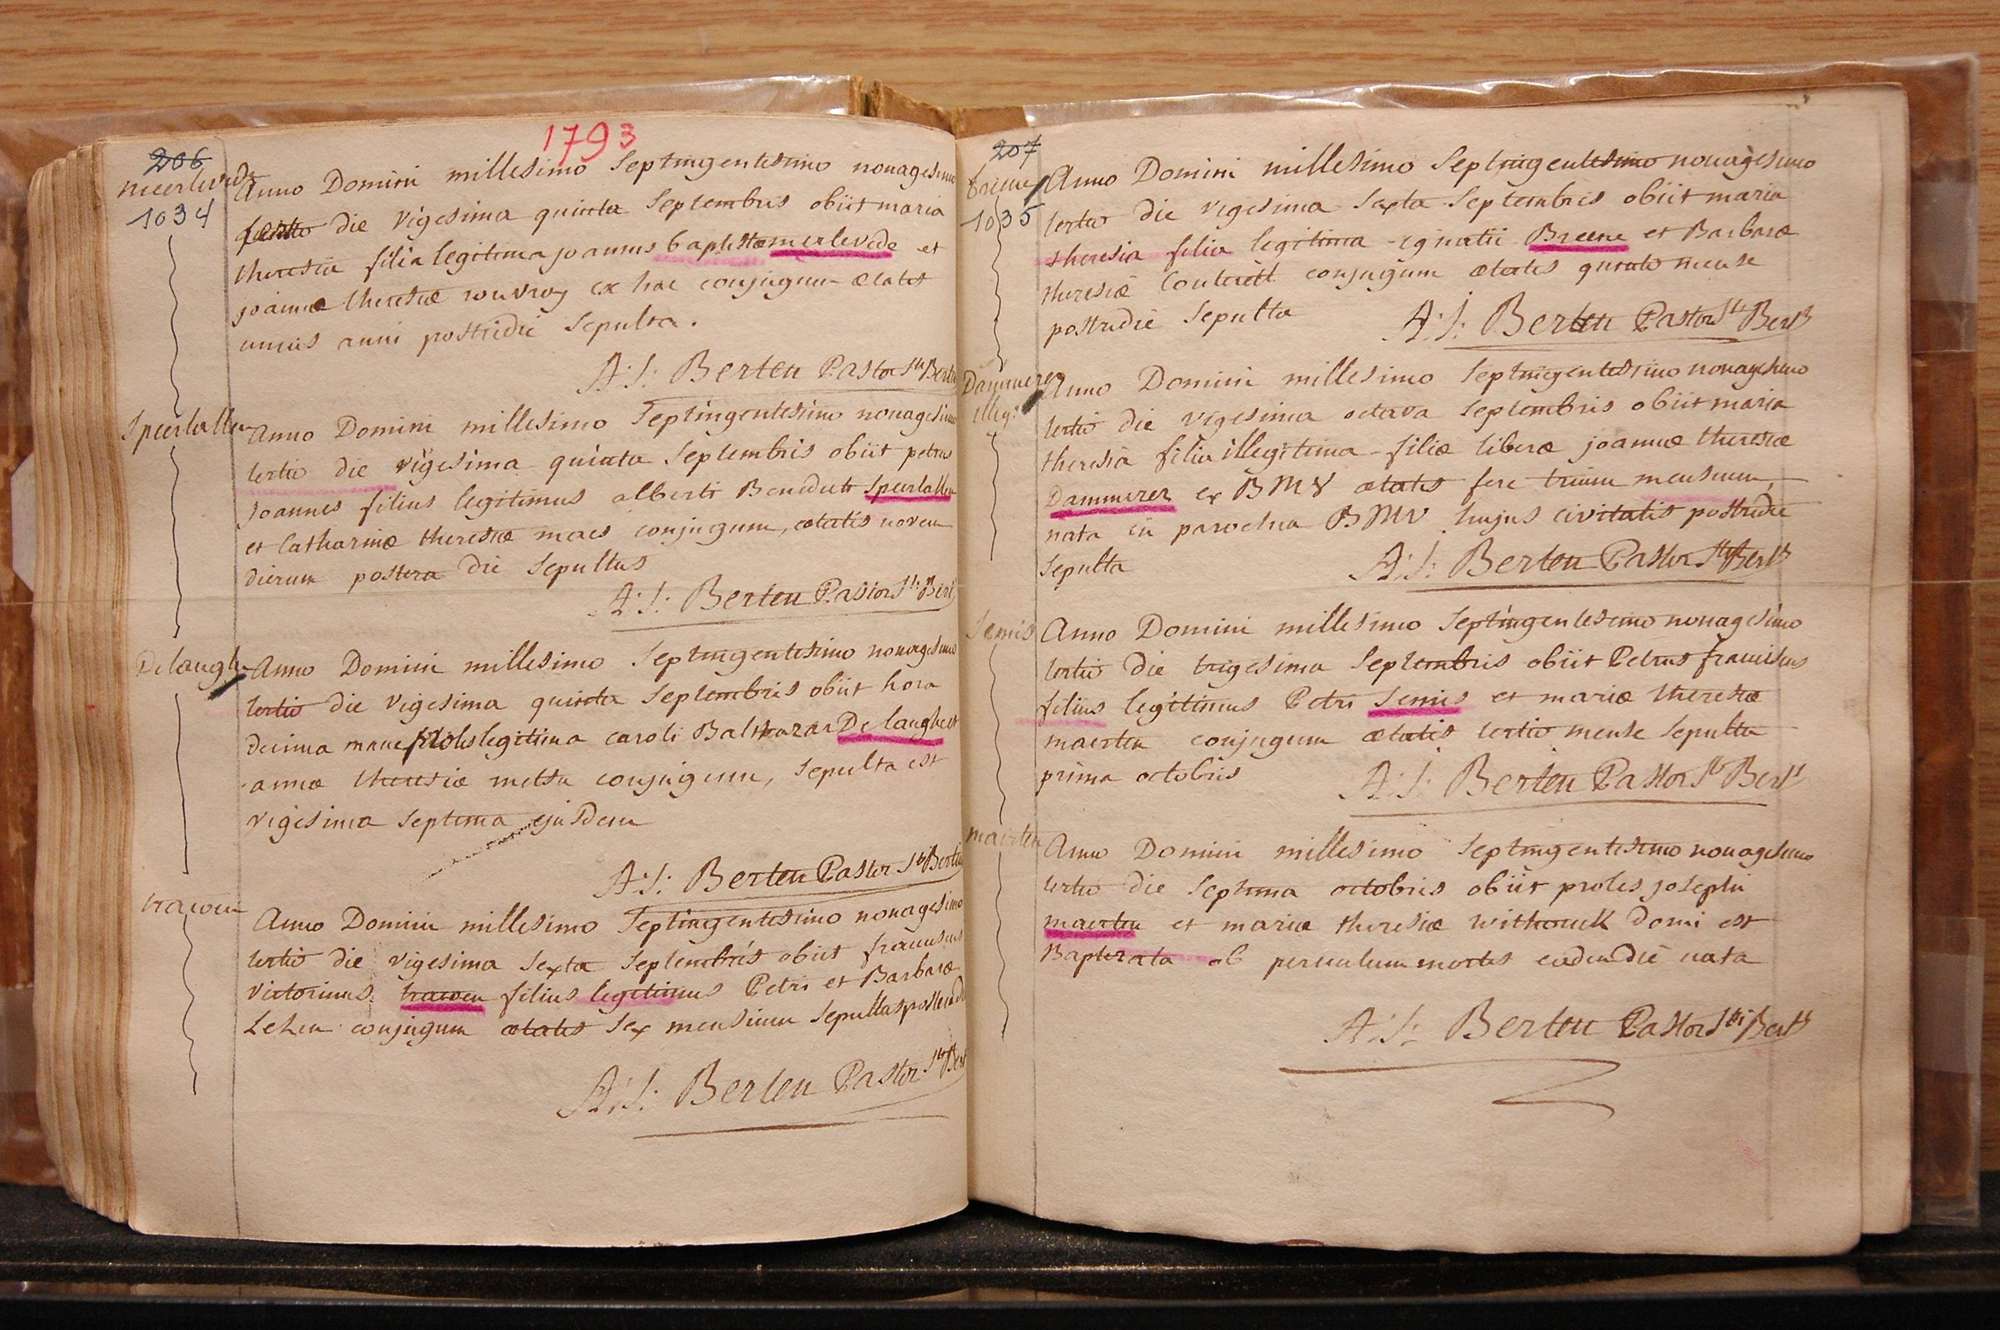 1793
206
meerlevede
1034
Anno Domini millesimo Septingentesimo nonagesimo
tertio die vigesima quinta Septembris obiit maria
theresia filia legitima joannis baptistæ merlevede et
joannæ theresiæ rouvroy ex hac conjugum ætatis
unius anni postridie Sepulta.
A: J: Berten Pastor Sti Berti
Speerlallen
Anno Domini millesimo Septingentesimo nonagesimo
tertio die vigesima quinta Septembris obiit petrus
joannes filius legitimus alberti Benedicti
et Catharinæ theresiæ maes conjugum, ætatis novem
dierum postera die Sepultus
A: J: Berten Pastor Sti Berti
Delaughe
Anno Domini millesimo Septingentesimo nonagesimo
tertio die vigesima quinta Septembris obiit hora
decima mane proles legitima caroli Balthazar Delaughe et
annæ theresiæ metsu conjugum, Sepulta est
vigesima Septima ejusdem
A: J: Berten Pastor Sti Berti
traisen
Anno Domini millesimo Septingentesimo nonagesimo
tertio die vigesima Sexta Septembris obiit franciscus
victorinus filius legitimus Petri et Barbaræ
conjugum ætatis Sex mensium Sepultus postera die
A: J: Berten Pastor Sti Bert
207
breene
1035
Anno Domini millesimo Septingentesimo nonagesimo
tertio die vigesima Sexta Septembris obiit maria
theresia filia legitima ignatii Breene et Barbaræ
theresiæ conjugum ætatis quinto mense
postridie Sepulta
A: J: Berten Pastor Sti Berti
Dammerez
illeg:
Anno Domini millesimo Septingentesimo nonagesimo
tertio die vigesima octava Septembris obiit maria
theresia filia illegitima filiæ liberæ joannæ theresiæ
Dammerez ex BMV ætatis fere trium mensium,
nata in parochia BMV hujus civitatis postridie
Sepulta
A: J: Berten Pastor Sti Berti
Semis
Anno Domini millesimo Septingentesimo nonagesimo
tertio die trigesima Septembris obiit Petrus franciscus
filius legitimus Petri Semis et mariæ theresiæ
maerten conjugum ætatis tertio mense Sepulta
prima octobris
A: J: Berten Pastor Sti Berti
maerten
Anno Domini millesimo Septingentesimo nonagesimo
tertio die Septima octobris obiit proles josephi
maerten et mariæ theresiæ withouck domi est
Baptizata ob periculum mortis eadem die nata
A: J: Berten Pastor Sti Berti